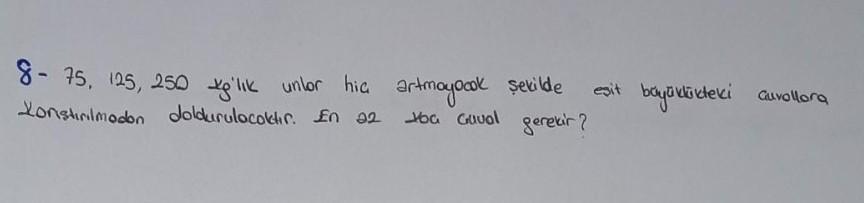 8- 75, 125, 250 kg'lık unlar hiç artmayacak şekilde eşit büyüklükteki çuvallara
karıştırılmadan doldurulacaktır. En az kaç çuval gerekir?